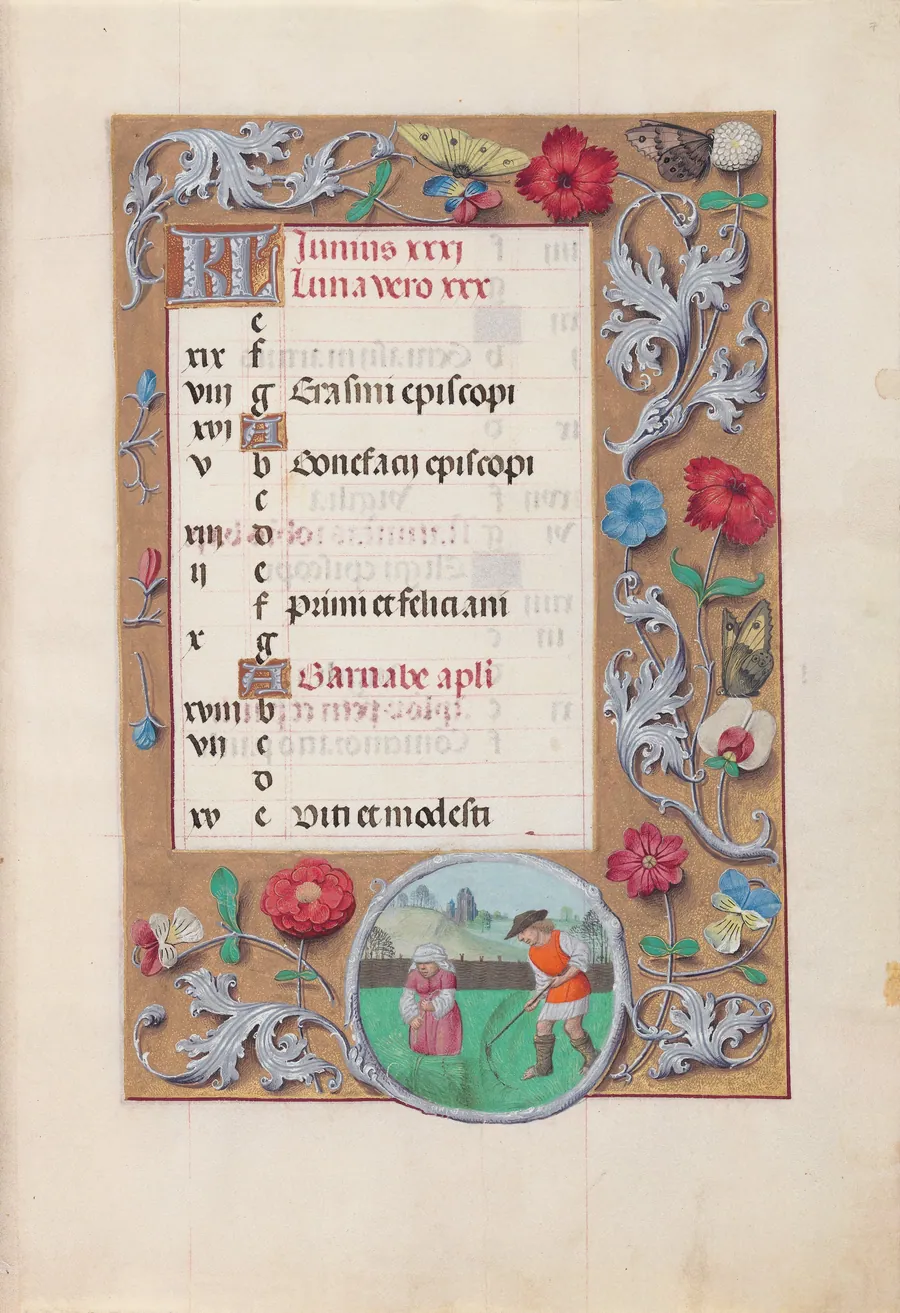 KL Junius xxxj
Luna vero xxx
e
xix f
viij g Erasmi episcopi
xvj A
v b Bonefacij episcopi
c
xiij d
ij e
f primi et feliciani
x g
A Barnabe apli
xviij b
vij c
d
xv e viti et modesti